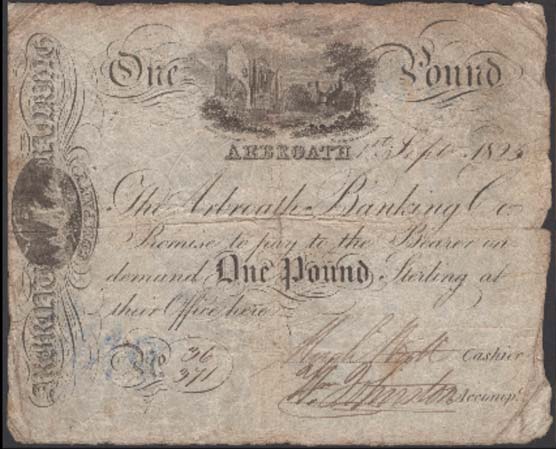 One Pound
ARBROATH 1st Sept 1825
The Arbroath Banking Co
Promise to pay to the Bearer on
demand One Pound Sterling at
their Office here
No 36
371
Cashier
Wm Johnston Accompt.
ARBROATH BANKING
COMPANY